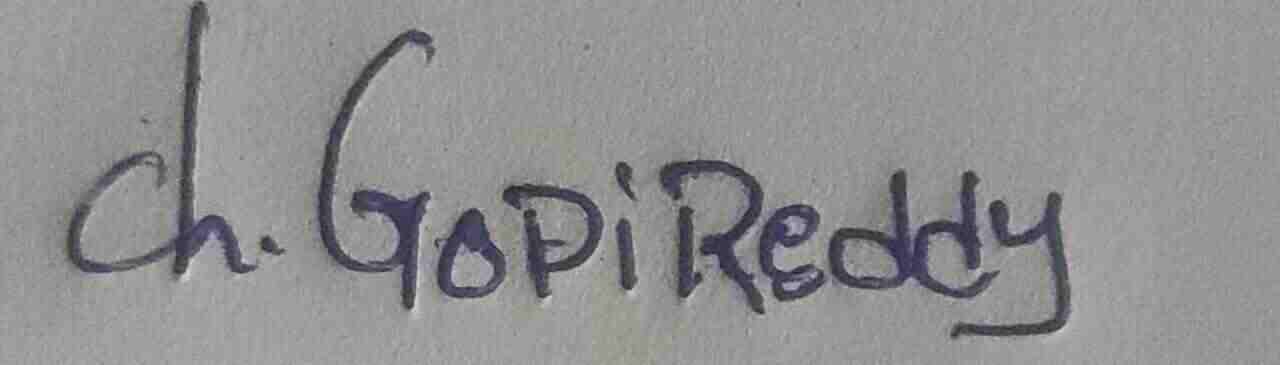 Ch. GopiReddy